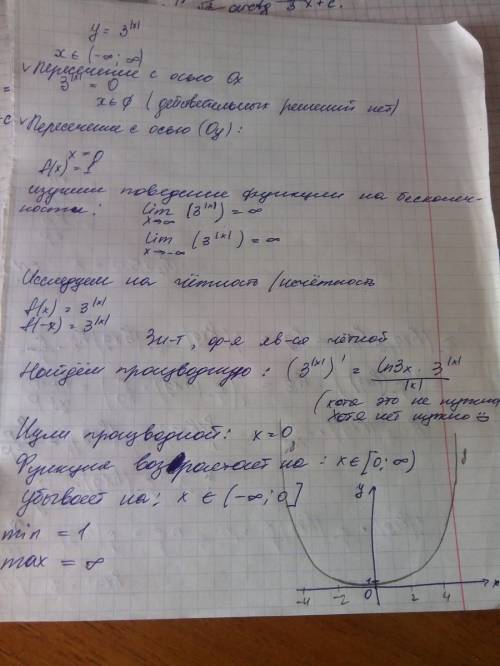 y = 3^|x|
x ∈ (-∞; ∞)
√ Пересечение с осью Ox
3^|x| = 0
x ∈ ∅ (действительных решений нет)
√ Пересечение с осью (Oy):
x = 0
f(x) = 1
изучим поведение функции на бесконеч-
ности: lim x→∞ (3^|x|) = ∞
lim x→-∞ (3^|x|) = ∞
Исследуем на чётность/нечётность
f(x) = 3^|x|
f(-x) = 3^|x|
Зн-т, ф-я яв-ся чётной
Найдём производную: (3^|x|)' = ln3x · 3^|x| / |x|
(хотя это не нужно
хотя нет нужно
Нули производной: x = 0
Функция возрастает на: x ∈ [0; ∞)
Убывает на: x ∈ (-∞; 0]
min = 1
max = ∞
y
1
-4 -2 0 2 4 x